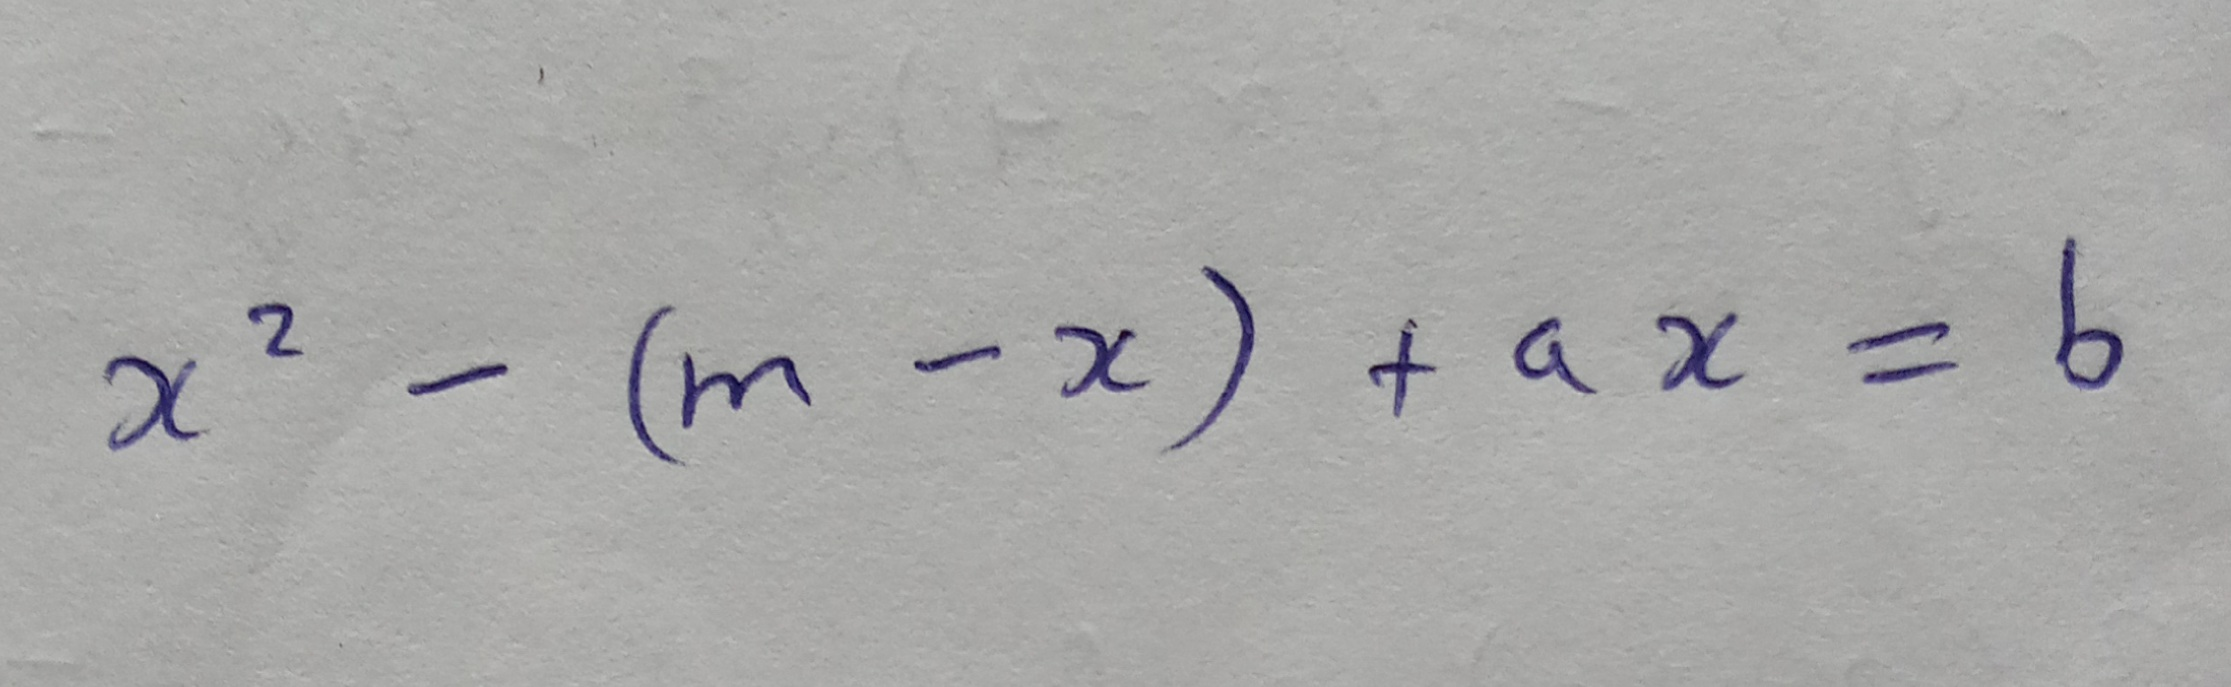 x² - (m - x) + ax = b